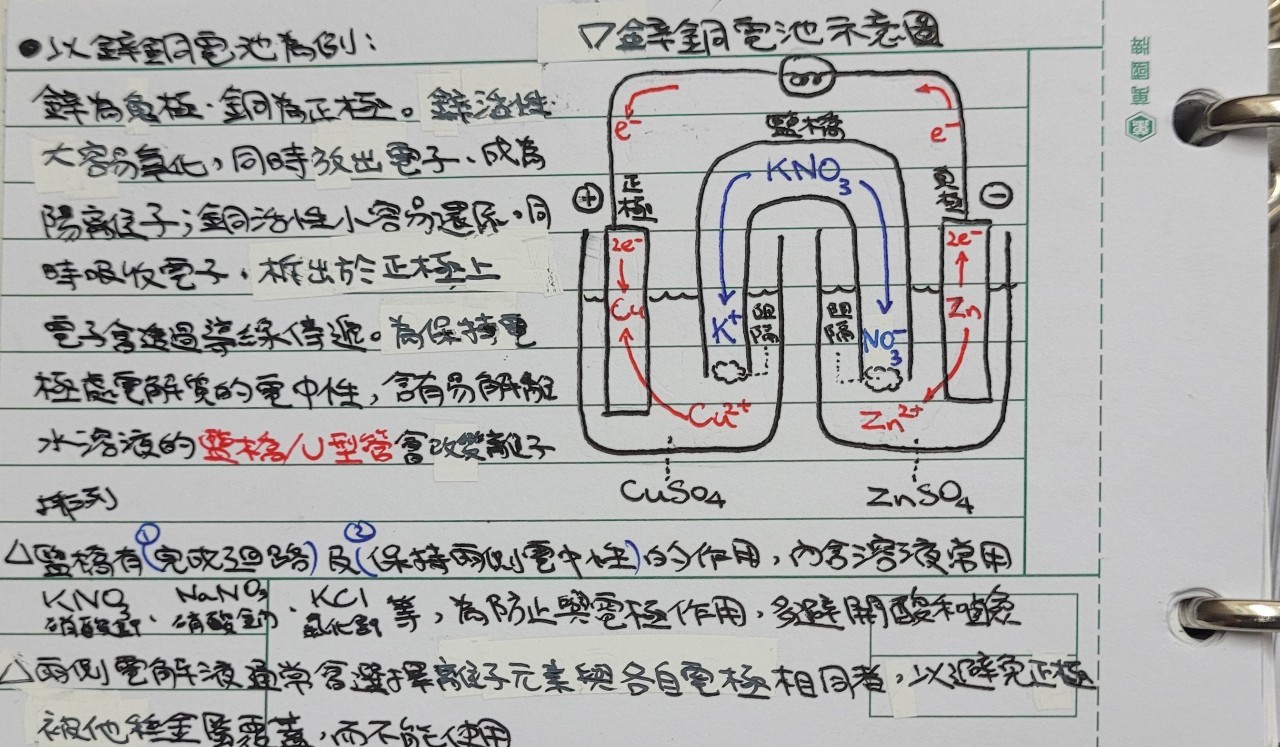 ●以鋅銅電池為例：
鋅為負極、銅為正極。鋅活性
大容易氧化，同時放出電子、成為
陽離子；銅活性小容易還原，同
時吸收電子、析出於正極上
電子會透過導線傳遞。為保持電
極處電解質的電中性，含有易解離
水溶液的鹽橋/U型管會改變離子
排列
▽鋅銅電池示意圖
e⁻
e⁻
鹽橋
KNO₃
⊕
正極
負極
⊖
2e⁻
2e⁻
Cu
Zn
K⁺
阻隔
阻隔
NO₃⁻
Cu²⁺
Zn²⁺
CuSO₄
ZnSO₄
△鹽橋有①(完成迴路)及②(保持兩側電中性)的作用，內含溶液常用
KNO₃ 硝酸鉀、NaNO₃ 硝酸鈉、KCl 氯化鉀 等，為防止與電極作用，多避開酸和鹼
△兩側電解液通常會選擇離子元素與各自電極相同者，以避免正極
被他種金屬覆蓋，而不能使用
萬國牌